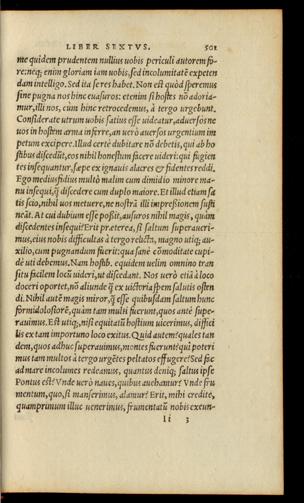 LIBER SEXTVS. 501
me quidem prudentem nullius uobis periculi autorem fo-
re: neq; enim gloriam iam uobis, sed incolumitatē expeten
dam intelligo. Sed ita se res habet. Non est quòd speremus
sine pugna nos hinc euasuros: etenim si hostes nō adoria-
mur, illi nos, cùm hinc retrocedemus, à tergo urgebunt.
Considerate utrum uobis satius esse uideatur, aduersos ne
uos in hostem arma inferre, an uerò auersos urgentium im
petum excipere. Illud certè dubitare nō debetis, qui ab ho
stibus discedūt, eos nihil honestum facere uideri: qui fugien
tes insequantur, sæpe ex ignauis alacres & fidentes reddi.
Ego medius fidius multò malim cum dimidio minore ma-
nu insequi, q̄ discedere cum duplo maiore. Et illud etiam sa
tis scio, nihil uos metuere, ne nostrā illi impressionem susti
neāt. At cui dubium esse possit, ausuros nihil magis, quàm
discedentes insequi? Erit præterea, si saltum superaueri-
mus, eius nobis difficultas à tergo relicta, magno utiq; au-
xilio, cum pugnandum fuerit: qua sanè cōmoditate cupi-
dè uti debemus. Nam hostib. equidem uelim omnino tran
situ facilem locū uideri, ut discedant. Nos uerò etiā à loco
doceri oportet, nō aliunde q̄ ex uictoria spem salutis osten
di. Nihil autē magis miror, q̄ esse quibusdam saltum hunc
formidolosiorē, quàm tam multi fuerunt, quos antè supe-
rauimus. Est utiq;, nisi equitatū hostium uicerimus, diffici
lis ex tam importuno loco exitus. Quid autem? quales tan
dem, quos adhuc superauimus, montes fuerunt? qui poteri
mus tam multos à tergo urgētes peltatos effugere? Sed sic
ad mare incolumes redeamus, quantus deniq; saltus ipse
Pontus est? Vnde uerò naues, quibus auehamur? Vnde fru
mentum, quo, si manserimus, alamur? Erit, mihi credite,
quamprimum illuc uenerimus, frumentatū nobis exeun-
Ii 3